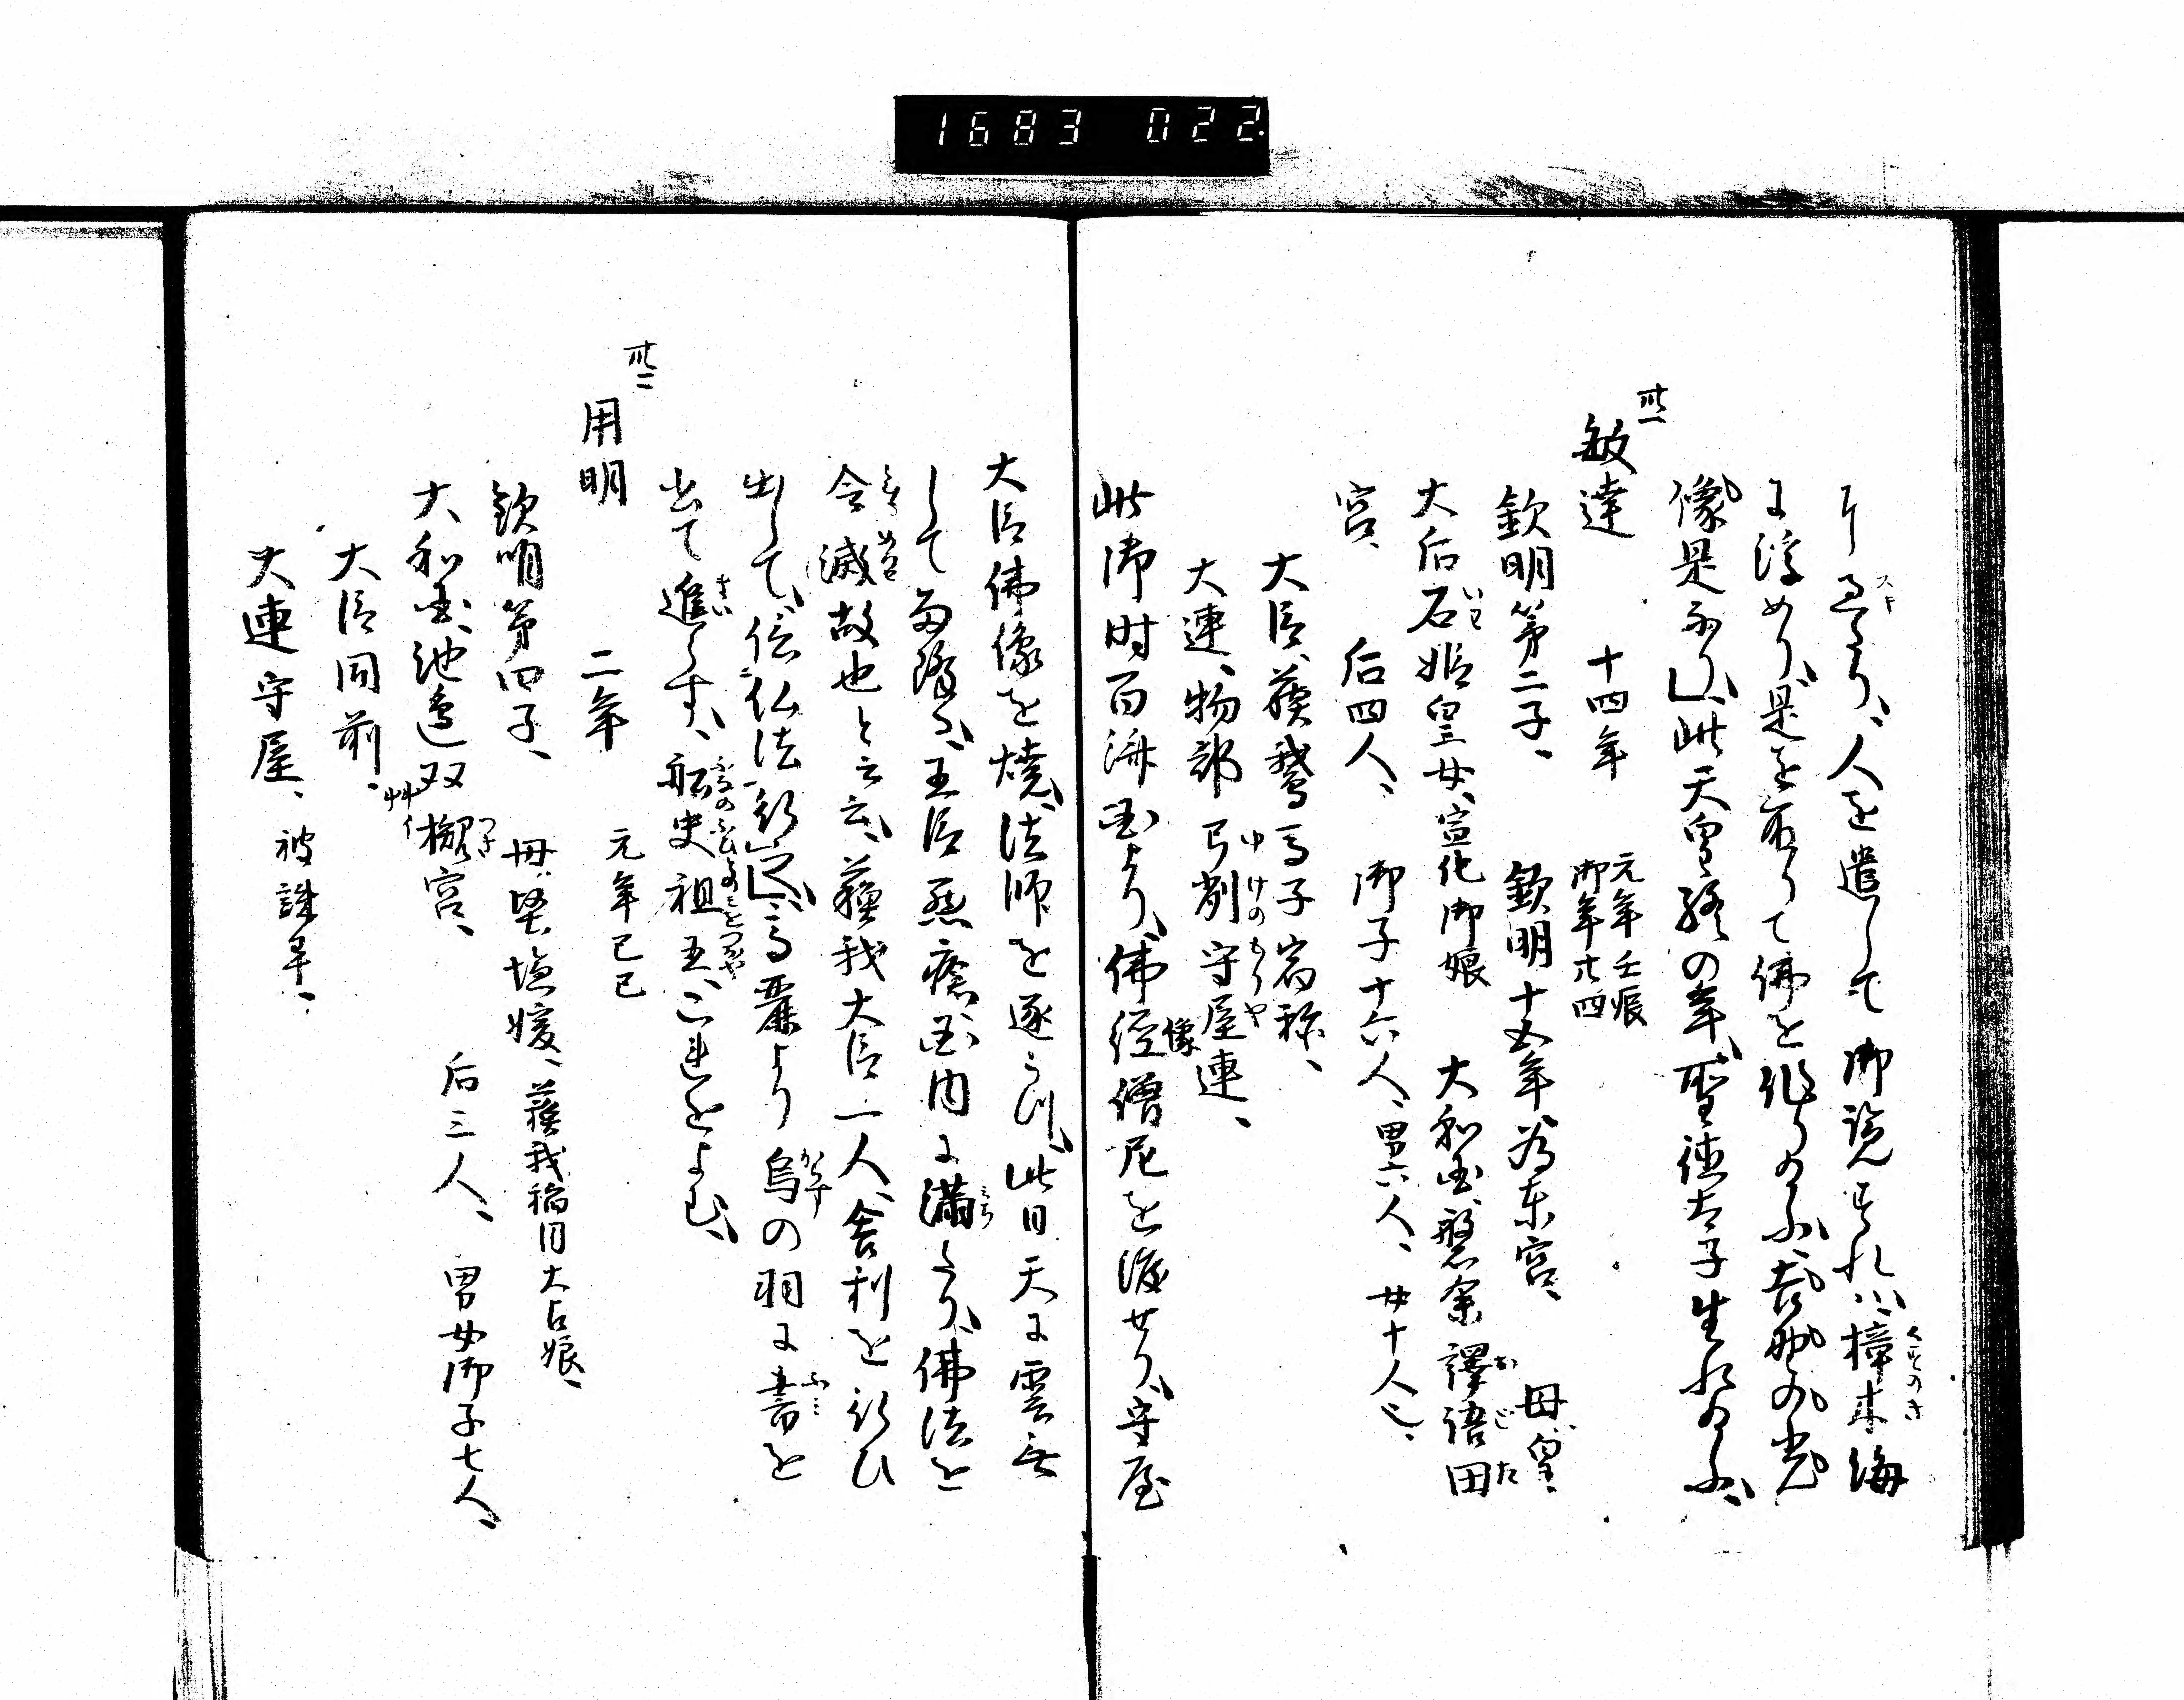 1683 022
事アリ、人を遣して御覧すれハ樟木海
に浮めり、是を取りて佛を作り給ふ、吉野の光
像是なり、此天皇終の年、聖徳太子生れ給ふ、
卅一
敏達 十四年 元年壬辰 御年廿四
欽明第二子、 欽明十五年為東宮、 母、皇
大后石姫皇女、宣化御娘 大和国、磐余譯語田
宮、 后四人、 御子十六人、男六人、女十人也、
大臣、蘓我馬子宿祢、
大連、物部弓削守屋連、
此御時百済国より、佛経像僧尼を渡せり、守屋
大臣佛像を焼、法師を逐うつ、此日天に雲無
して雨降る、王臣悪瘡国内に満たり、佛法を
令滅故也と云云、蘓我大臣一人、舎利を行ひ
出して、信仏法行、高麗より烏の羽に書を
書て進らす、船史祖王、これをよむ、
卅二
用明 二年 元年乙巳
欽明第四子、 母、堅塩媛、蘓我稲目大臣娘、
大和国、池邊双槻宮、 后三人、 男女御子七人、
大臣同前、
大連守屋、被誅畢、